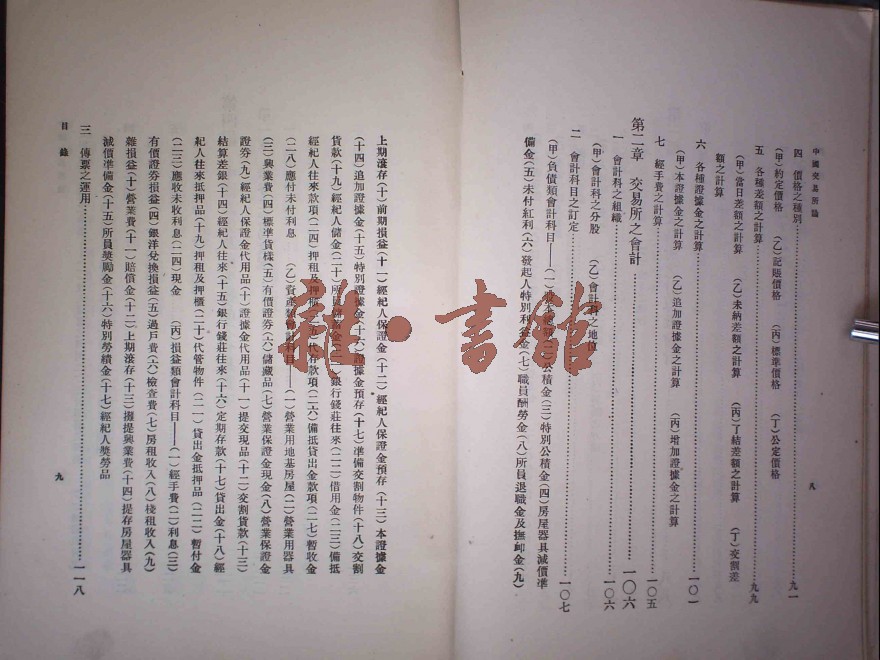 中國交易所論
八
四 價格之種別……九一
(甲)約定價格 (乙)記賬價格 (丙)標準價格 (丁)公定價格
五 各種差額之計算……九九
(甲)當日差額之計算 (乙)未納差額之計算 (丙)了結差額之計算 (丁)交割差
額之計算
六 各種證據金之計算……一〇一
(甲)本證據金之計算 (乙)追加證據金之計算 (丙)增加證據金之計算
七 經手費之計算……一〇五
第二章 交易所之會計……一〇六
一 會計科之組織……一〇六
(甲)會計科之分股 (乙)會計科之地位
二 會計科目之訂定……一〇七
(甲)負債類會計科目——(一)資本 (二)公積金(三)特別公積金(四)房屋器具減價準
備金(五)未付紅利(六)發起人特別利益金(七)職員酬勞金(八)所員退職金及撫卹金(九)
上期滾存(十)前期損益(十一)經紀人保證金(十二)經紀人保證金預存(十三)本證據金
(十四)追加證據金(十五)特別證據金(十六)證據金預存(十七)準備交割物件(十八)交割
貨款(十九)經紀人儲金(二十)所員儲蓄金(二一)銀行錢莊往來(二二)借用金(二三)備抵
經紀人往來款項(二四)押租及押櫃(二五)代存款項(二六)備抵貸出金款項(二七)暫收金
(二八)應付未付利息 (乙)資產類會計科目——(一)營業用地基房屋(二)營業用器具
(三)興業費(四)標準貨樣(五)有價證券(六)儲藏品(七)營業保證金現金(八)營業保證金
證券(九)經紀人保證金代用品(十)證據金代用品(十一)提交現品(十二)交割貨款(十三)
結算差銀(十四)經紀人往來(十五)銀行錢莊往來(十六)定期存款(十七)貸出金(十八)經
紀人往來抵押品(十九)押租及押櫃(二十)代管物件(二一)貸出金抵押品(二二)暫付金
(二三)應收未收利息(二四)現金 (丙)損益類會計科目——(一)經手費(二)利息(三)
有價證券損益(四)銀洋兌換損益(五)過戶費(六)檢查費(七)房租收入(八)棧租收入(九)
雜損益(十)營業費(十一)賠償金(十二)上期滾存(十三)攤提興業費(十四)提存房屋器具
減價準備金(十五)所員獎勵金(十六)特別勞績金(十七)經紀人獎勞品
三 傳票之運用……一一八
目錄
九
龍·書館